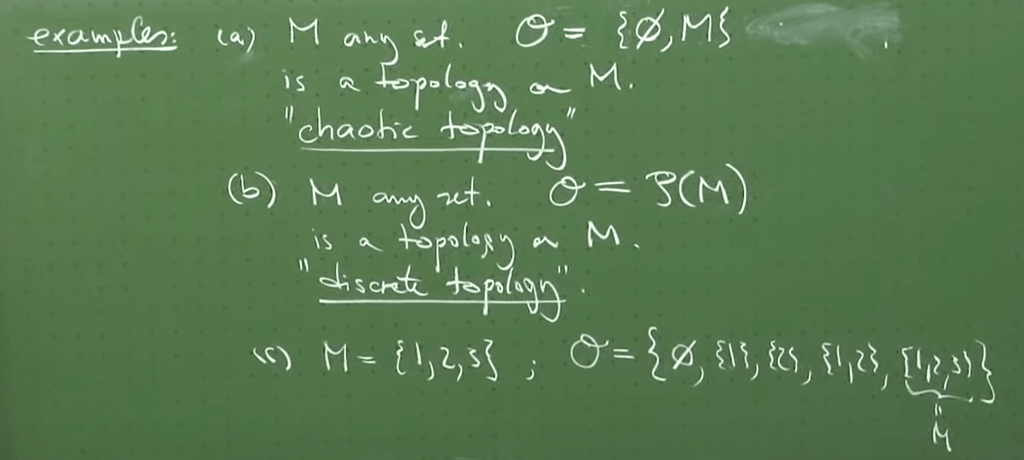 examples: (a) M any set. O = {∅, M}
is a topology on M.
"chaotic topology"
(b) M any set. O = P(M)
is a topology on M.
"discrete topology".
(c) M = {1,2,3} ; O = {∅, {1}, {2}, {1,2}, {1,2,3}}
"
M